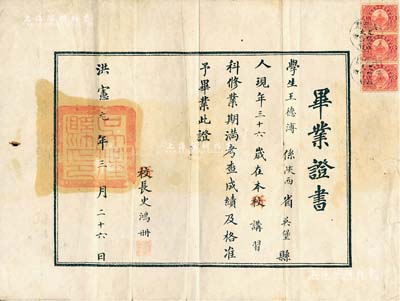 畢業證書
學生王德溥係陝西省吳堡縣
人現年三十六歲在本校講習
科修業期滿考查成績及格准
予畢業此證
校長史鴻冊
洪憲元年三月二十六日